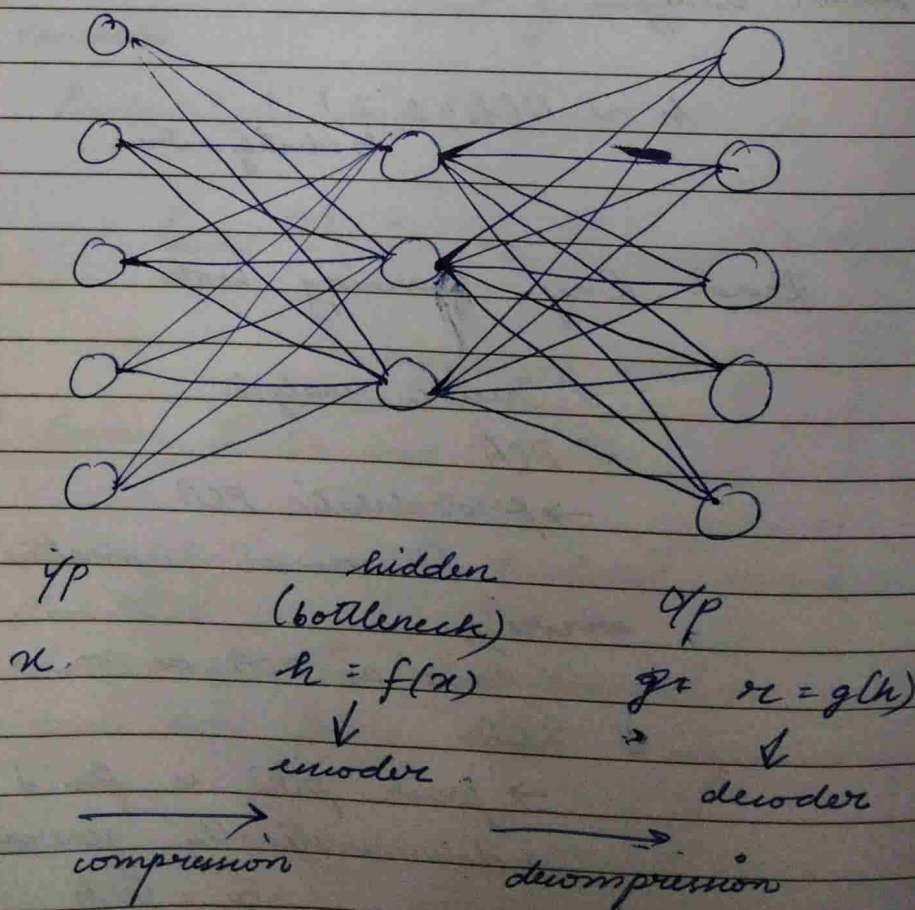 i/p
hidden
(bottleneck)
o/p
x.
h = f(x)
r = g(h)
encoder
decoder
compression
decompression